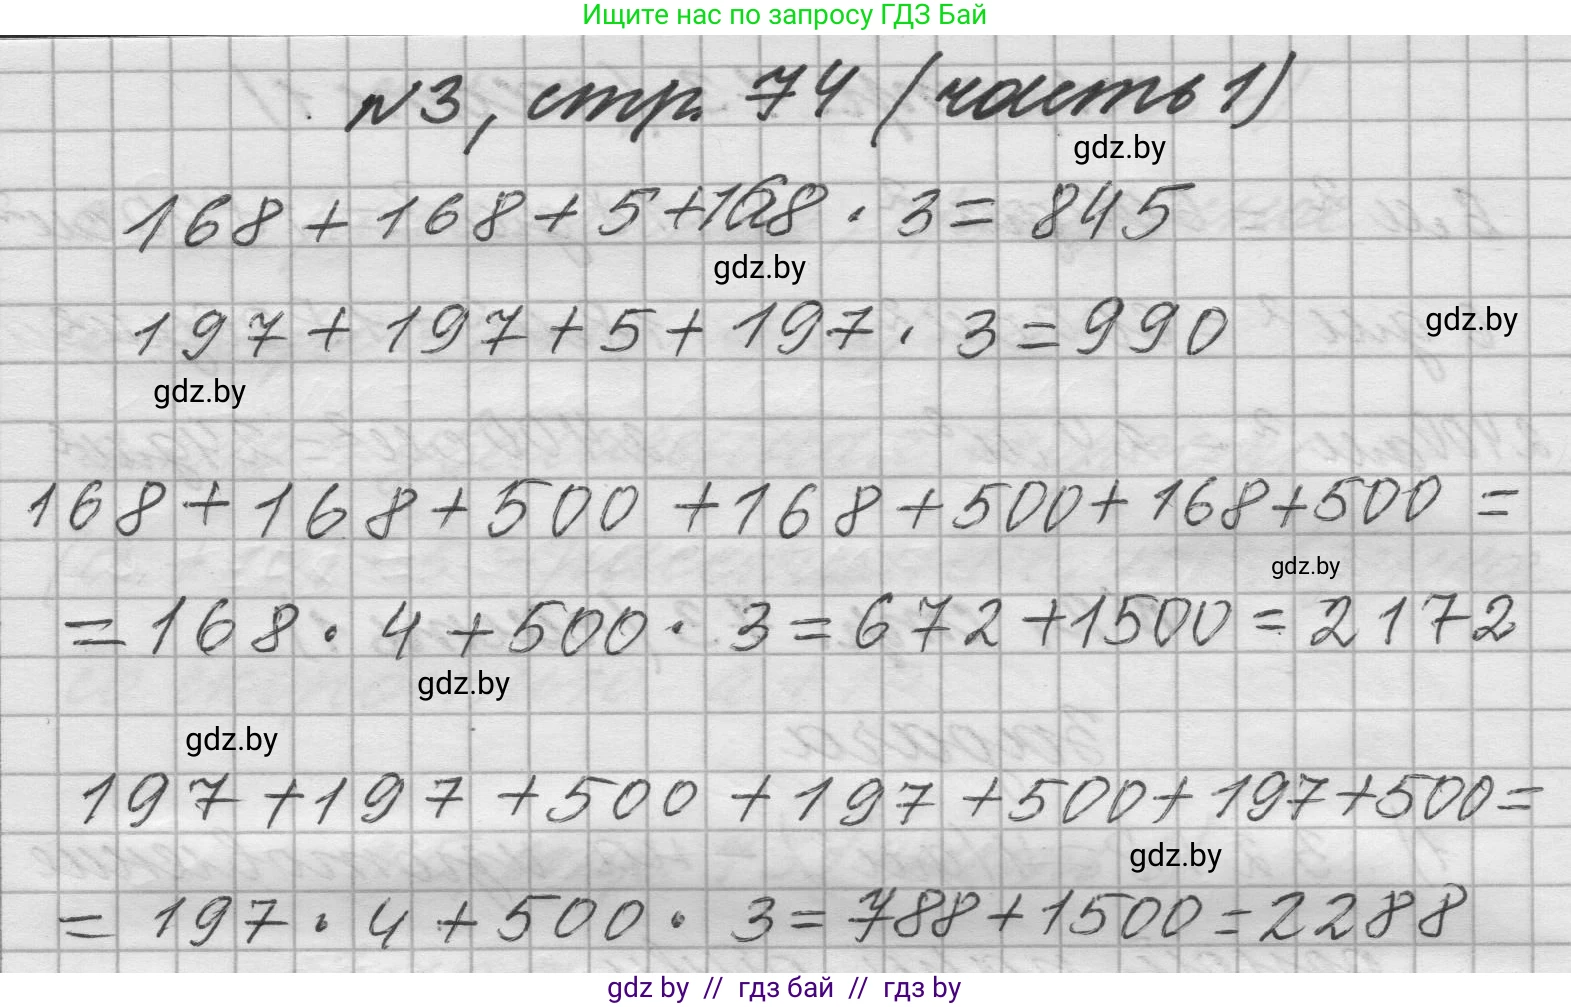 Ищите нас по запросу ГДЗ Бай
№3, стр. 74 (часть 1)
gdz.by
168 + 168 + 5 + 168 · 3 = 845
gdz.by
197 + 197 + 5 + 197 · 3 = 990
gdz.by
gdz.by
168 + 168 + 500 + 168 + 500 + 168 + 500 =
gdz.by
= 168 · 4 + 500 · 3 = 672 + 1500 = 2172
gdz.by
gdz.by
197 + 197 + 500 + 197 + 500 + 197 + 500 =
gdz.by
= 197 · 4 + 500 · 3 = 788 + 1500 = 2288
gdz by // гдз бай // гдз by